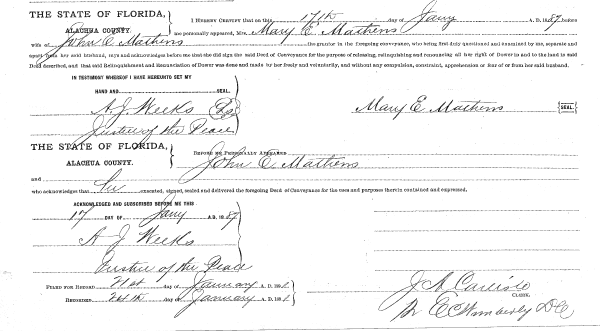 THE STATE OF FLORIDA,
ALACHUA COUNTY.
I HEREBY CERTIFY that on this 17th day of Jany A. D. 1887 before
me personally appeared, Mrs. Mary E Mathens
wife of John E Mathens the grantor in the foregoing conveyance, who being first duly questioned and examined by me, separate and
apart from her said husband, says and acknowledges before me that she did sign the said Deed of Conveyance for the purpose of releasing, relinquishing and renouncing all her right of Dower in and to the land in said
Deed described, and that said Relinquishment and Renunciation of Dower was done and made by her freely and voluntarily, and without any compulsion, constraint, apprehension or fear of or from her said husband.
IN TESTIMONY WHEREOF I HAVE HEREUNTO SET MY
HAND AND SEAL.
A. J. Weeks
Mary E. Mathens {SEAL}
Justice of the Peace
THE STATE OF FLORIDA,
ALACHUA COUNTY.
BEFORE ME PERSONALLY APPEARED
John E. Mathens
and
who acknowledges that he executed, signed, sealed and delivered the foregoing Deed of Conveyance for the uses and purposes therein contained and expressed.
ACKNOWLEDGED AND SUBSCRIBED BEFORE ME THIS
17 DAY OF Jany A.D. 1887
A J Weeks
Justice of the Peace
FILED FOR RECORD 21st day of January A. D. 1881
RECORDED day of January A. D. 1881
J. A. Carlisle
CLERK,
E C Wimberly D C